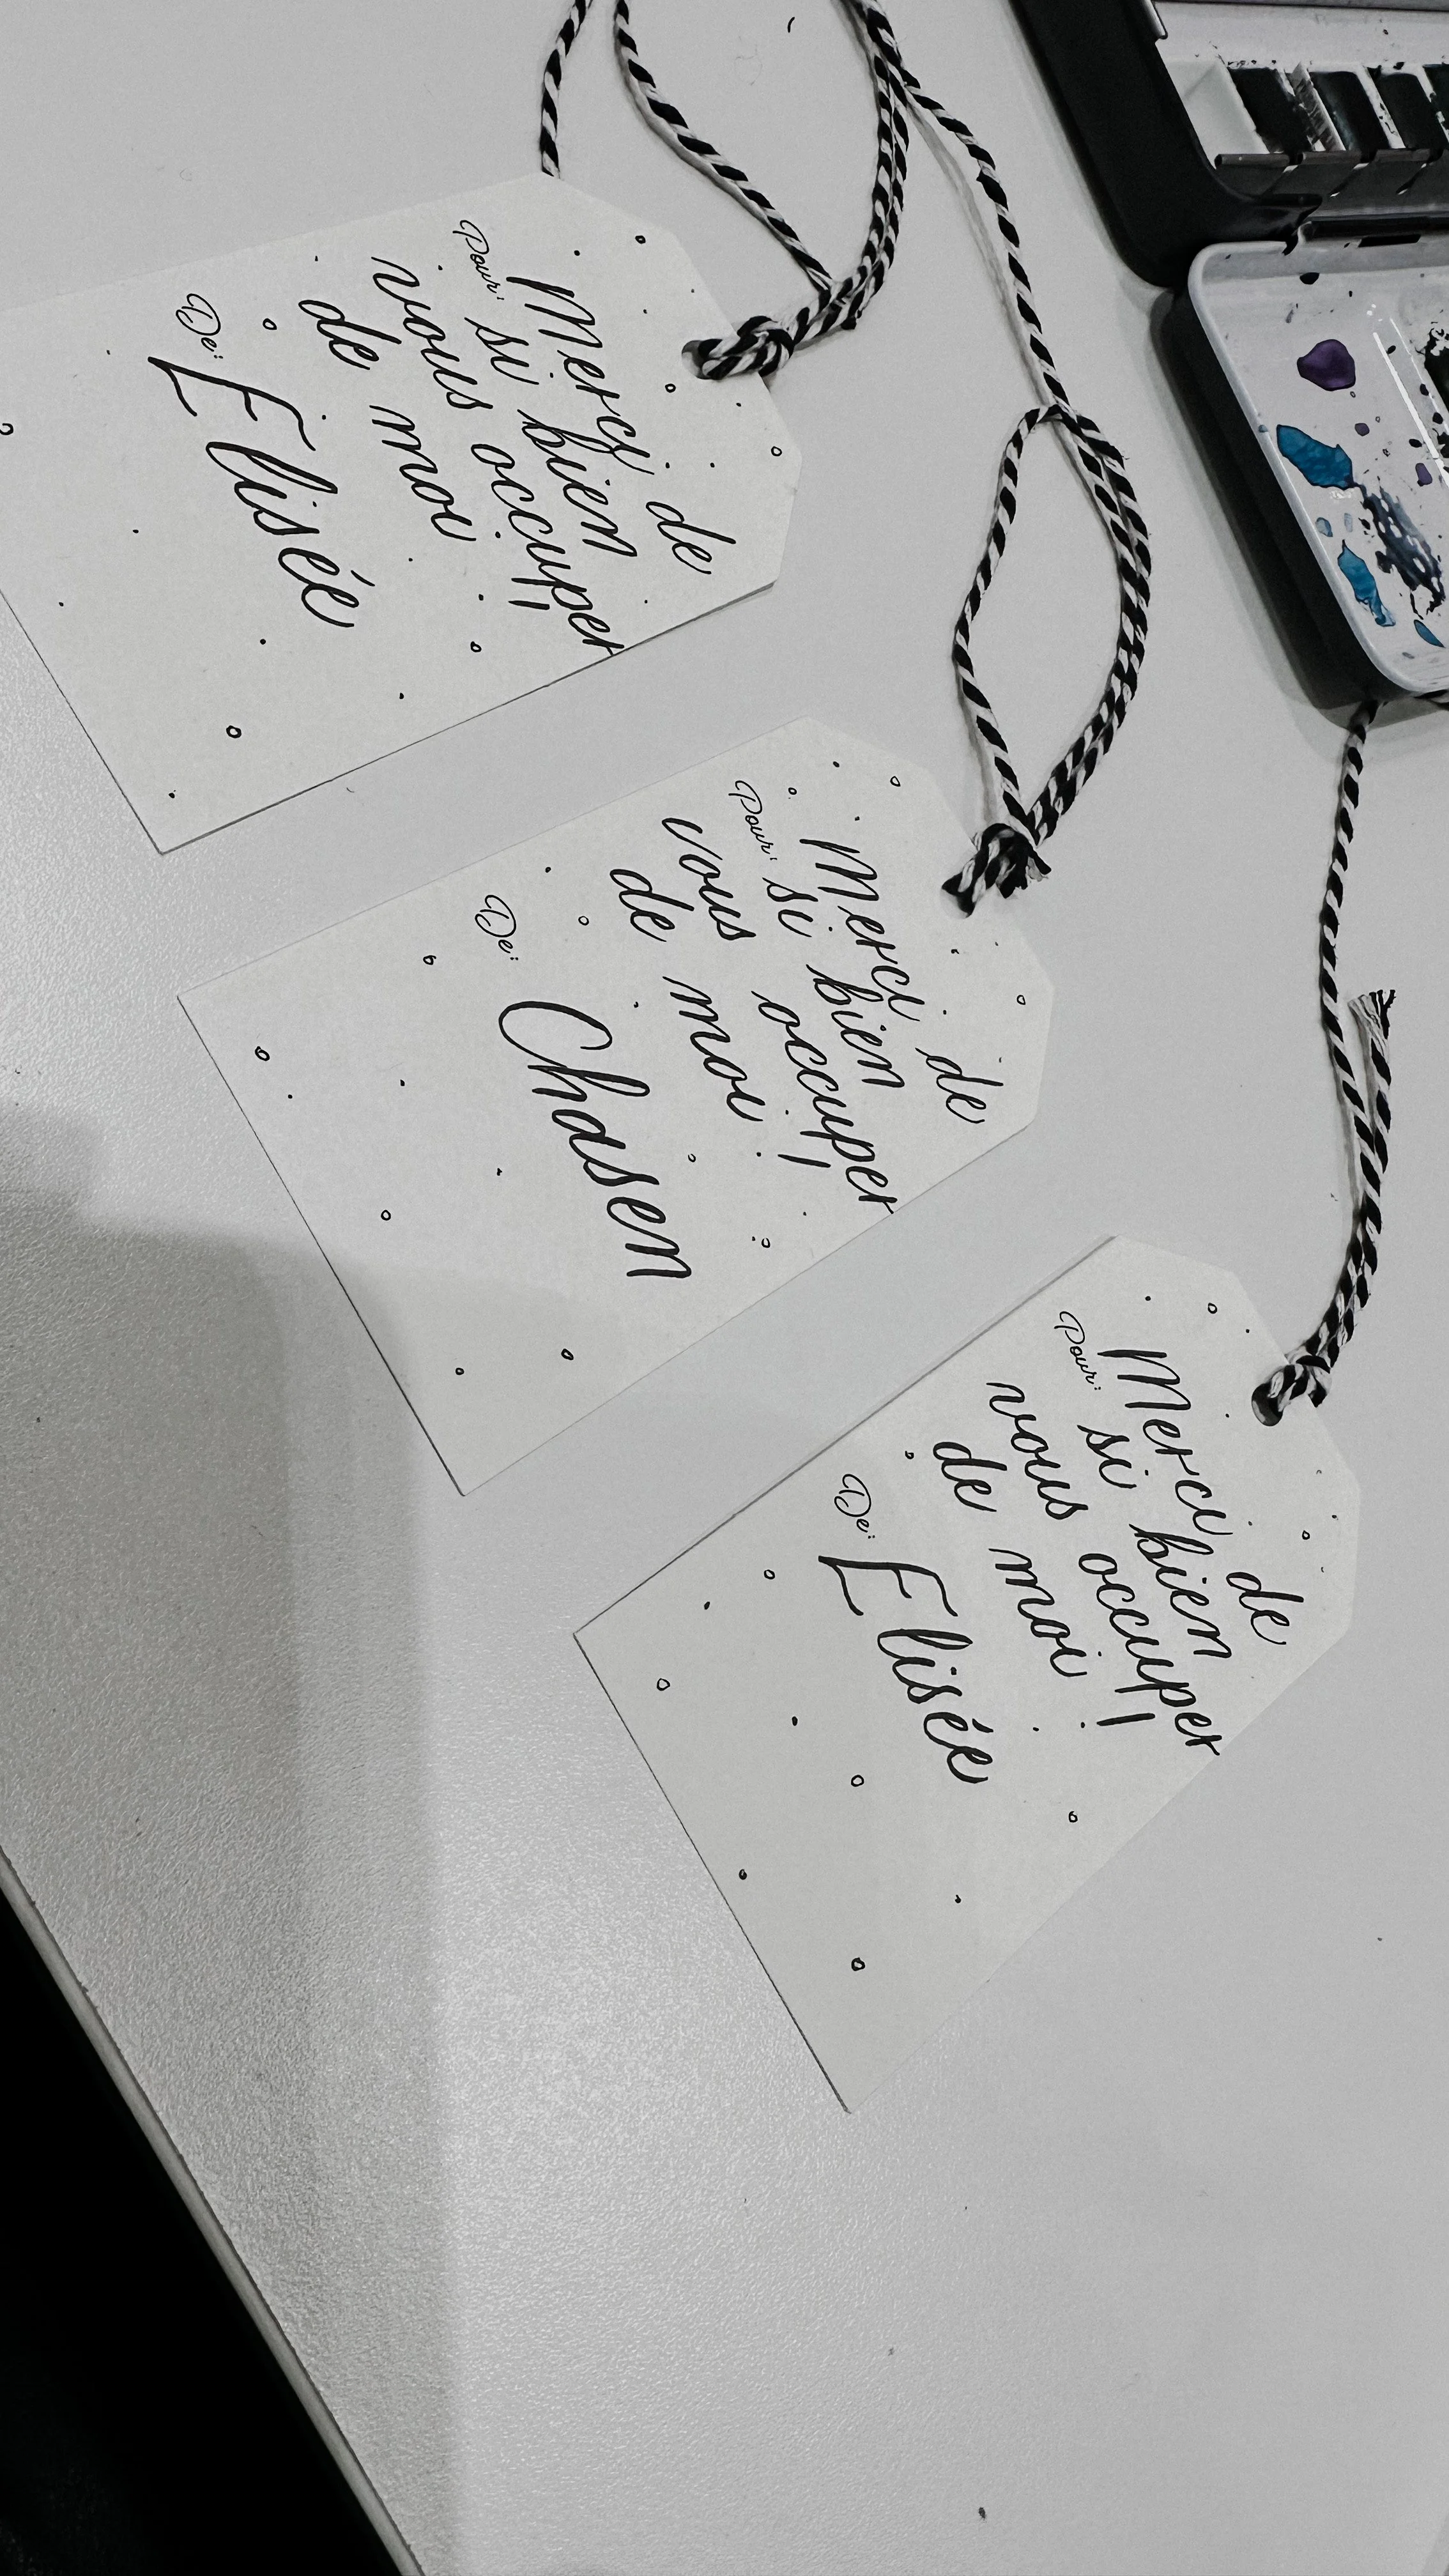 Merci de
Pour: si bien
vous occuper
de moi !
De: Elisée
Merci de
Pour: si bien
vous occuper
de moi !
De: Chasen
Merci de
Pour: si bien
vous occuper
de moi !
De: Elisée